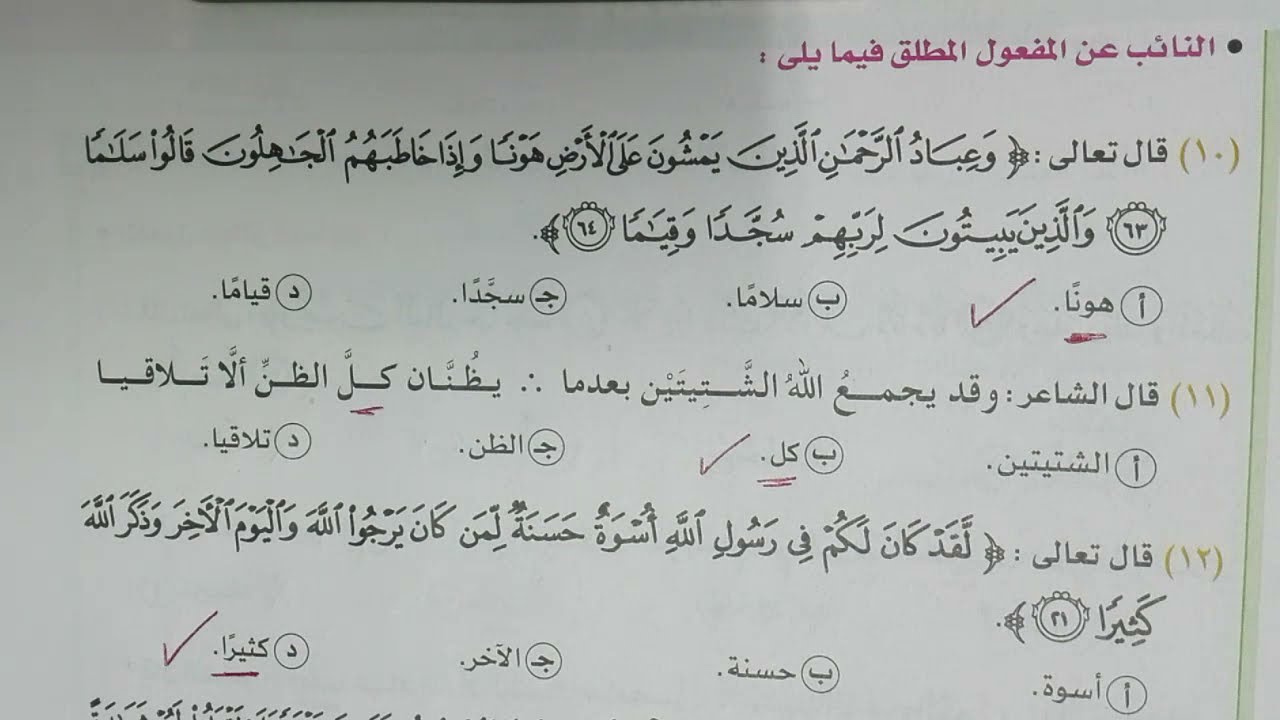 • النائب عن المفعول المطلق فيما يلى :
(١٠) قال تعالى : ﴿ وَعِبَادُ الرَّحْمَٰنِ الَّذِينَ يَمْشُونَ عَلَى الْأَرْضِ هَوْنًا وَإِذَا خَاطَبَهُمُ الْجَاهِلُونَ قَالُوا سَلَامًا
٦٣ وَالَّذِينَ يَبِيتُونَ لِرَبِّهِمْ سُجَّدًا وَقِيَامًا ٦٤ ﴾.
أ هونًا. ب سلامًا. جـ سجَّدًا. د قيامًا.
(١١) قال الشاعر : وقد يجمـع اللهُ الشَّـتِيتَيْن بعدما ∴ يظُنَّان كـلَّ الظنِّ ألَّا تَـلاقيـا
أ الشتيتين. ب كل. جـ الظن. د تلاقيا.
(١٢) قال تعالى : ﴿ لَّقَدْ كَانَ لَكُمْ فِي رَسُولِ اللَّهِ أُسْوَةٌ حَسَنَةٌ لِّمَن كَانَ يَرْجُوا اللَّهَ وَالْيَوْمَ الْآخِرَ وَذَكَرَ اللَّهَ
كَثِيرًا ٢١ ﴾.
أ أسوة. ب حسنة. جـ الآخر. د كثيرًا.